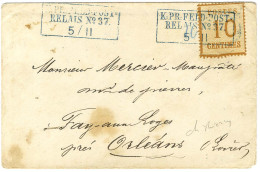 K.PR.FELD-POST
RELAIS No 37.
5/11
K.PR.FELD-POST
RELAIS No 37.
5/11
10
CENTIMES
Monsieur Mercier
de pierres,
Fay-aux-Loges
près Orléans (Loiret)